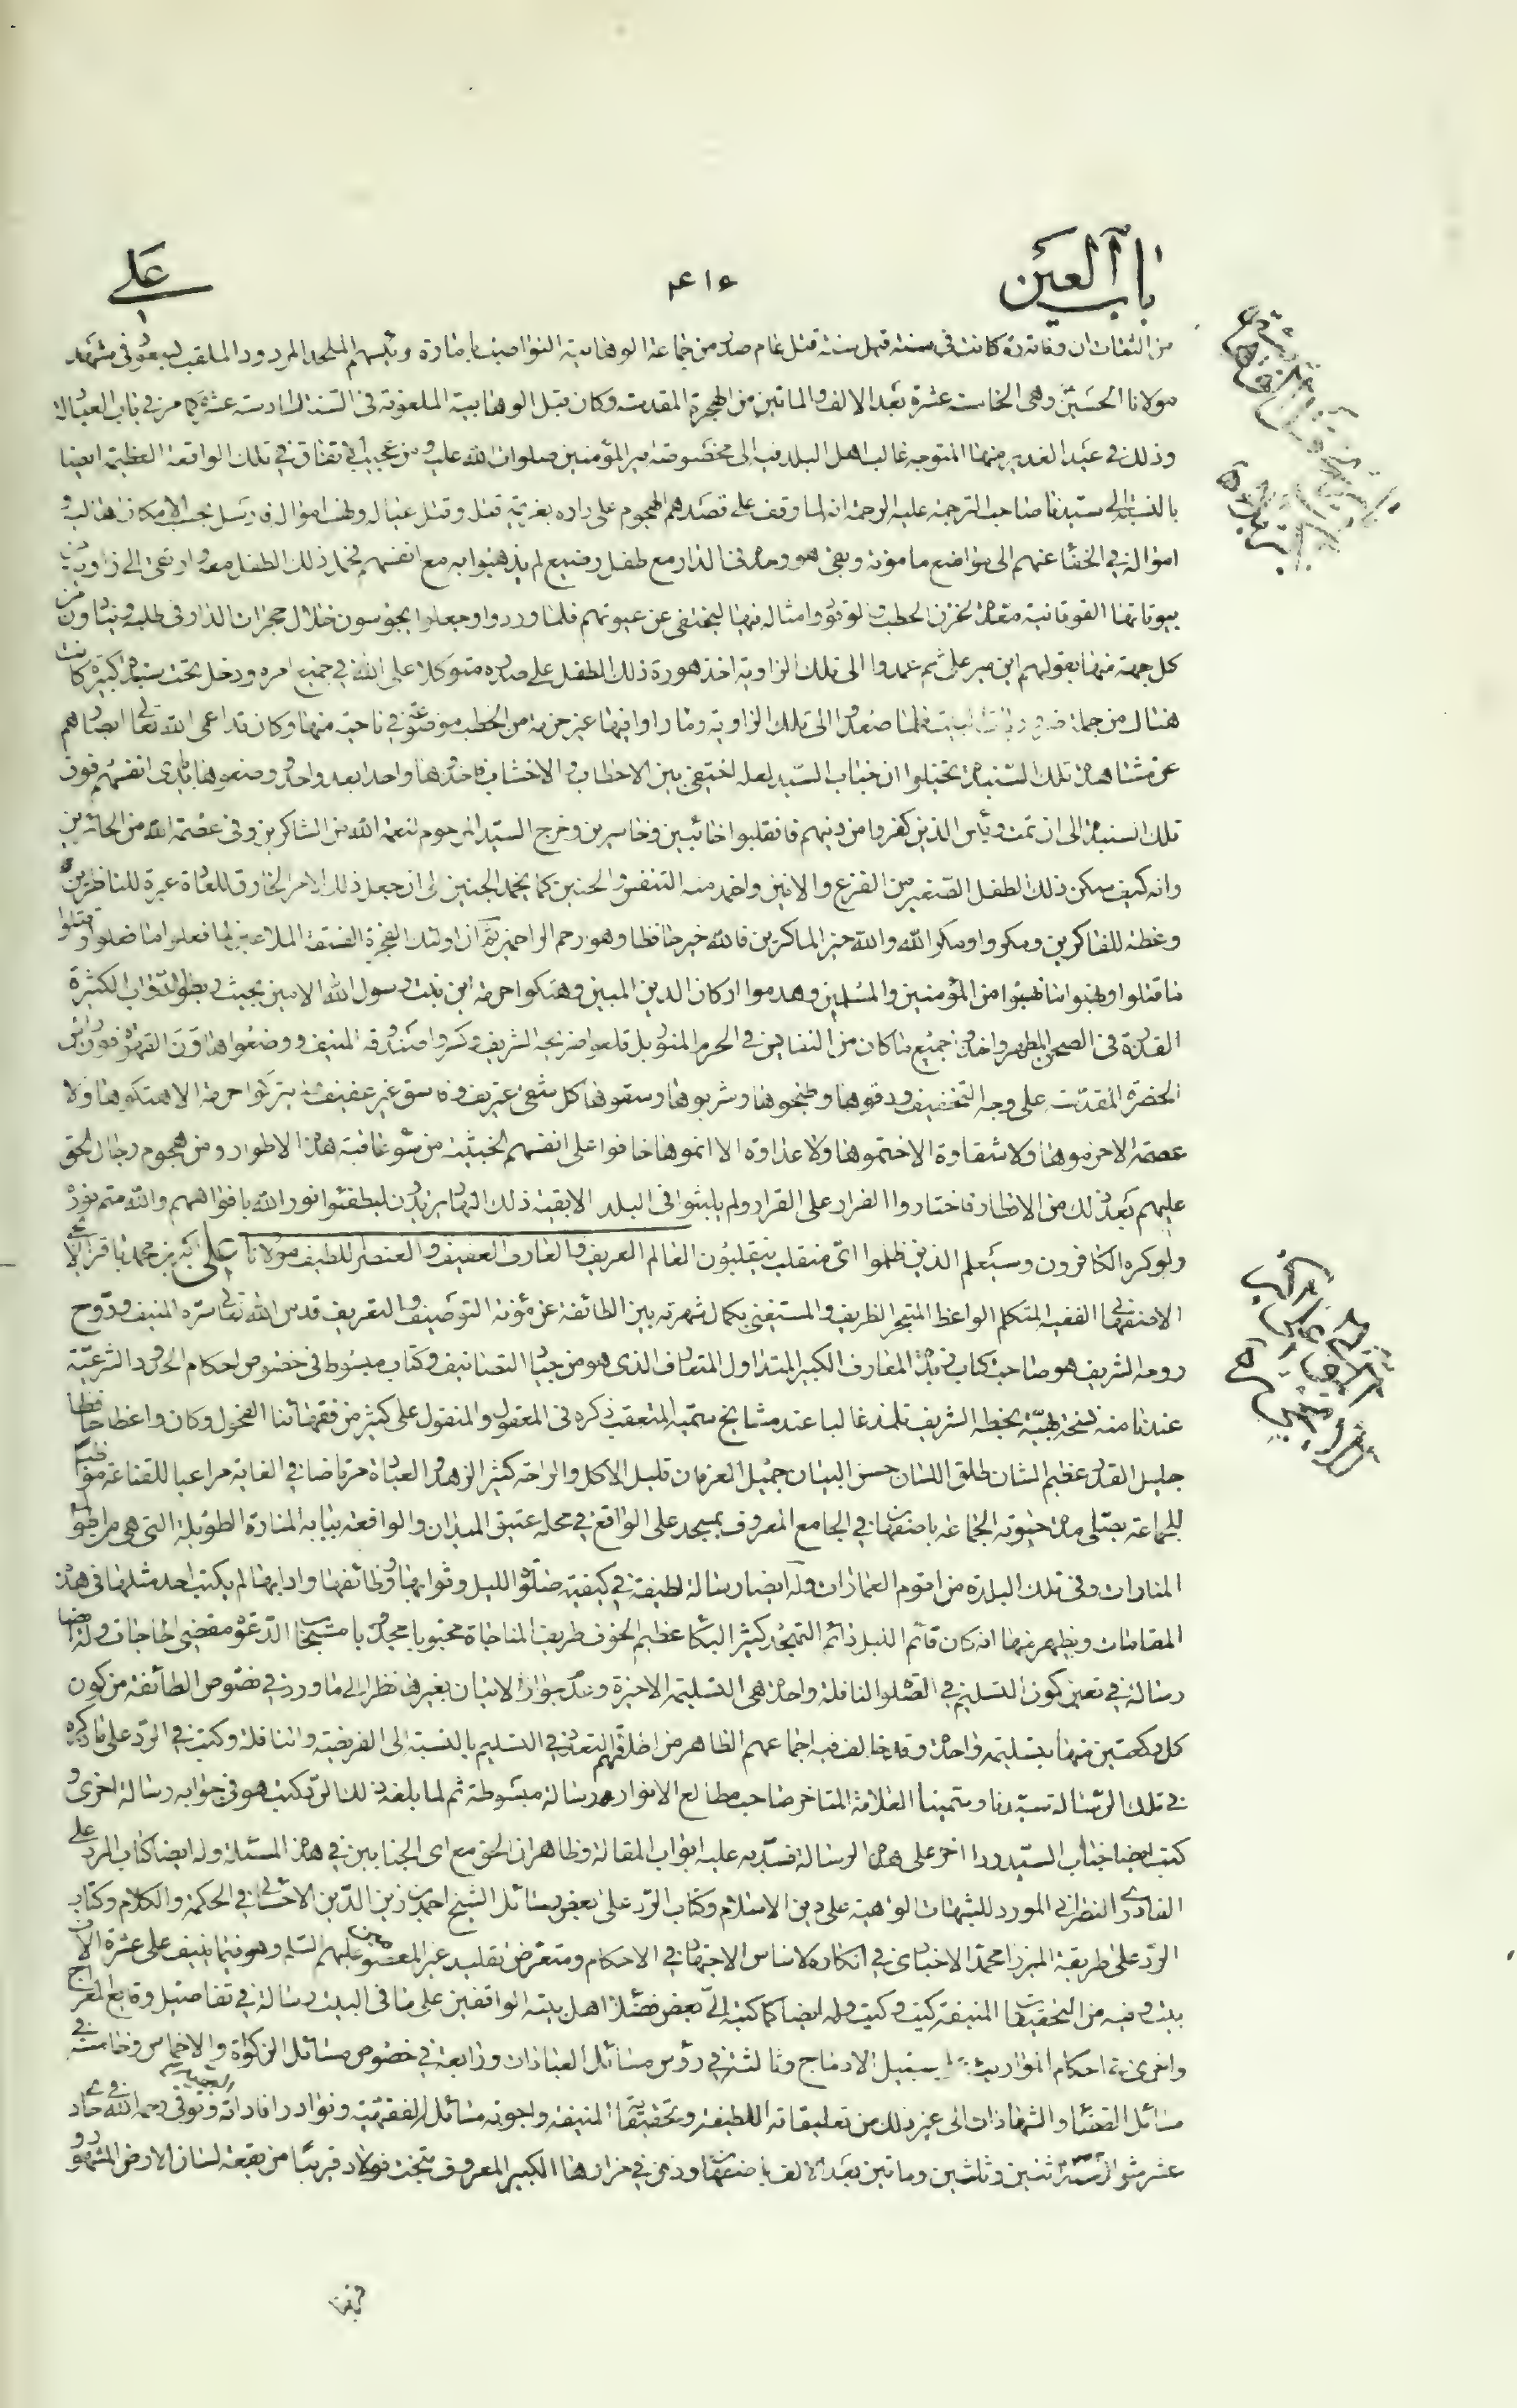 باب العين
٤١٥
على
من الثقات ان وفاته ره كانت في سنة قبل سنة قتل عام صدر من جماعة الوهابية النواصب بامارة رئيسهم الملحد المردود الملقب بسعود في مشهد
مولانا الحسين وهي الخامسة عشرة بعد الالف والماتين من الهجرة المقدسة وكان قبل الوهابية الملعونة في السنة السادسة عشرة كما مر في باب العبادلة
وذلك في عيد الغدير منها المتوجه غالب اهل البلد فيه الى مخصوصة امير المؤمنين صلوات الله عليه ومن عجيب الاتفاق في تلك الواقعة العظيمة ايضا
بالنسبة الى سيدنا صاحب الترجمة عليه الرحمة انه لما وقف على قصدهم الهجوم على داره بعزيمة قتله وقتل عياله ونهب امواله فارسل بحسب الامكان اهاليه و
امواله في الخفاء عنهم الى مواضع مامونة وبقى هو وحده في الدار مع طفل رضيع لم يذهبوا به مع انفسهم فحمل ذلك الطفل معه وارتقى الى زاوية من
بيوتاتها الفوقانية معدة لخزن الحطب والوقود وامثاله فيها ليختفى عن عيونهم فلما وردوا وجعلوا يجوسون خلال حجرات الدار في طلبه وينادون من
كل جهة منها بقولهم اين مير على ثم عمدوا الى تلك الزاوية اخذ هو ره ذلك الطفل على صدره متوكلا على الله في جميع امره ودخل تحت سبدة كبيرة كانت
هناك من جملة ضروريات البيت فلما صعدوا الى تلك الزاوية وما راوا فيها غير حزمة من الحطب موضوعة في ناحية منها وكان قد اعمى الله تعالى ابصارهم
عن مشاهدة تلك السبدة تخيلوا ان جناب السيد لعله اختفى بين الاحطاب والاخشاب فاخذوها واحدا بعد واحد ووضعوها بايدى انفسهم فوق
تلك السبدة الى ان تمت ويأس الذين كفروا من دينهم فانقلبوا خائبين وخاسرين وخرج السيد المرحوم لنعمة الله من الشاكرين وفي عصمة الله من الحائرين
وانه كيف سكن ذلك الطفل الصغير من الفزع والانين واخمد منه التنفس والحنين كما يخمد الجنين الى ان جعل ذلك الامر الخارق للعادة عبرة للناظرين
وعظة للفاكرين ومكروا ومكر الله والله خير الماكرين فالله خير حافظا وهو ارحم الراحمين ثم ان اولئك الفجرة الفسقة الملاعين لما فعلوا ما فعلوا وقتلوا
ما قتلوا ونهبوا ما نهبوا من المؤمنين والمسلمين وهدموا اركان الدين المبين وهتكوا حرمة ابن بنت رسول الله الامين بحيث ربطوا الدواب الكثيرة
القذرة في الصحن المطهر واخذوا جميع ما كان من النفايس في الحرم المنور بل قلعوا ضريحه الشريف وكسروا صندوقه المنيف ووضعوا هاون القهوة فوق راس
الحضرة المقدسة على وجه التخفيف ودقوها وطبخوها وشربوها وسقوها كل شقى عتريف وفاسق غير عفيف فلم يتركوا حرمة الا هتكوها ولا
عصمة الا خرموها ولا شقاوة الا ختموها ولا عداوة الا اتموها خافوا على انفسهم الخبيثة من سوء عاقبة هذه الاطوار ومن هجوم رجال الحق
عليهم بعد ذلك من الاقطار فاختاروا الفرار على القرار ولم يلبثوا في البلد الا بقية ذلك النهار يريدون ليطفئوا نور الله بافواههم والله متم نوره
ولو كره الكافرون وسيعلم الذين ظلموا اى منقلب ينقلبون العالم العريف والعارف العفيف والعنصر اللطيف مولانا على اكبر بن محمد باقر الايجى
الاصفهانى الفقيه المتكلم الواعظ المتبحر الظريف والمستغنى بكمال شهرته بين الطائفة عن مؤنة التوصيف والتعريف قدس الله تعالى سره المنيف وروح
روحه الشريف هو صاحب كتاب زبدة المعارف الكبير المتداول المتعارف الذى هو من جياد التصانيف وكتاب مبسوط في خصوص احكام الحدود الشرعية
عندنا منه نسخة طيبة بخطه الشريف تلمذ غالبا عند مشايخ سميه المتعقب ذكره في المعقول والمنقول على كثير من فقهائنا الفحول وكان واعظا حافظا
جليل القدر عظيم الشان طلق اللسان حسن البيان جميل العرفان قليل الاكل والراحة كثير الزهد والعبادة مرتاضا في الغاية مراعيا للقناعة مواظبا
للجماعة يصلى مدة حيوته الجماعة باصفهان في الجامع المعروف بمسجد على الواقع في محلة عتيق الميدان والواقعة ببابه المنارة الطويلة التى هي من اطول
المنارات وفي تلك البلدة من اقوم العمارات وله ايضا رسالة لطيفة في كيفية صلوة الليل وثوابها ووظائفها وادابها لم يكتب احد مثلها في هذه
المقامات ويظهر منها انه كان قائم الليل دائم التهجد كثير البكاء عظيم الخوف ظريف المناجاة محبوبا مجدودا مستجاب الدعوة مقضى الحاجات وله ايضا
رسالة في تعيين كون التسليم في الصلوة النافلة واحدة هي التسليمة الاخيرة وعدم جواز الاتيان بغيرها نظرا الى ما ورد في نصوص الطائفة من كون
كل ركعتين منها بتسليمة واحدة وقد خالف فيه اجماعهم الظاهر من اطلاقهم التعدد في التسليم بالنسبة الى الفريضة والنافلة وكتب في الرد على ما ذكره
في تلك الرسالة سيدنا وسمينا العلامة المتاخر صاحب مطالع الانوار ره رسالة مبسوطة ثم لما بلغه ذلك الرد كتب هو في جوابه رسالة اخرى و
كتب ايضا جناب السيد ردا اخر على هذه الرسالة فسد به عليه ابواب المقالة وظاهر ان الحق مع اى الجنابين في هذه المسئلة وله ايضا كتاب الرد على
الفادرى النصرانى المورد للشبهات الواهية على دين الاسلام وكتاب الرد على بعض رسائل الشيخ احمد بن زين الدين الاحسائى في الحكمة والكلام وكتاب
الرد على طريقة الميرزا محمد الاخبارى في انكاره لاساس الاجتهاد في الاحكام ومتعرض لتقليد غير المعصومين عليهم السلام وهو فيما ينيف على عشرة الاف
بيت وفيه من التحقيقات المنيفة كيت وكيت وله ايضا كما كتبه الى بعض فضلاء اهل بيته الواقفين على ما في البيت رسالة في تفاصيل وقايع المعراج
واخرى في احكام المواريث على سبيل الادماج وثالثة في رؤس مسائل العبادات ورابعة في خصوص مسائل الزكوة والاخماس وخامسة في
مسائل القضاء والشهادات الى غير ذلك من تعليقاته اللطيفة وتحقيقاته المنيفة واجوبة مسائل الفقهية ونوادر افاداته وتوفى رحمه الله في حادى
عشر شوال سنة اثنين وثلثين وماتين بعد الالف باصفهان ودفن في مزارها الكبير المعروف بتخت فولاد قريبا من بقعة لسان الارض المشهور